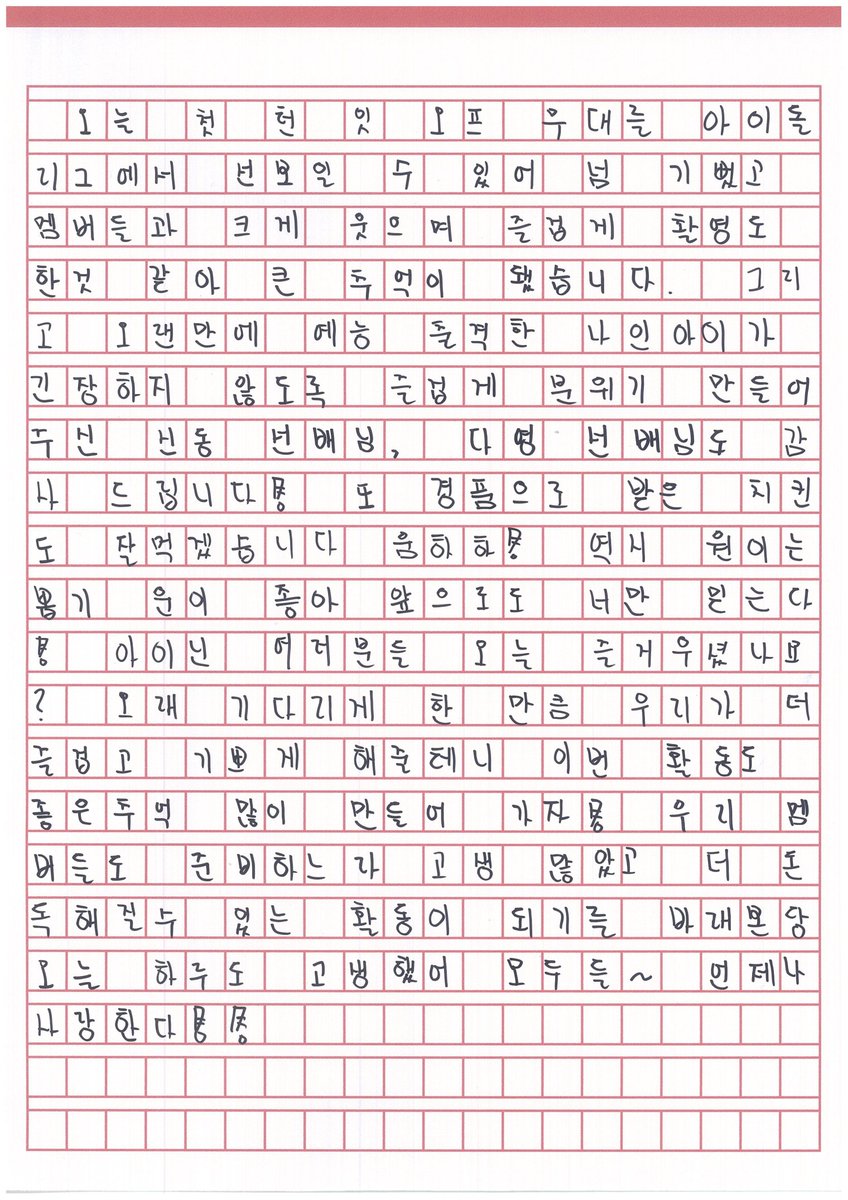 오늘 첫 턴 잇 오프 무대를 아이돌
리그에서 선보일 수 있어 넘 기뻤고
멤버들과 크게 웃으며 즐겁게 촬영도
한것 같아 큰 추억이 됐습니다. 그리
고 오랜만에 예능 출격한 나인아이가
긴장하지 않도록 즐겁게 분위기 만들어
주신 신동 선배님, 다영 선배님도 감
사 드립니다몽 또 경품으로 받은 치킨
도 잘먹겠습니다 움하하몽 역시 원이는
뽑기 운이 좋아 앞으로도 너만 믿는다
몽 아이닌 여러분들 오늘 즐거우셨나요
? 오래 기다리게 한 만큼 우리가 더
즐겁고 기쁘게 해줄테니 이번 활동도
좋은추억 많이 만들어 가자몽 우리 멤
버들도 준비하느라 고생 많았고 더 돈
독해질수 있는 활동이 되기를 바래본당
오늘 하루도 고생했어 모두들~ 언제나
사랑한다몽몽